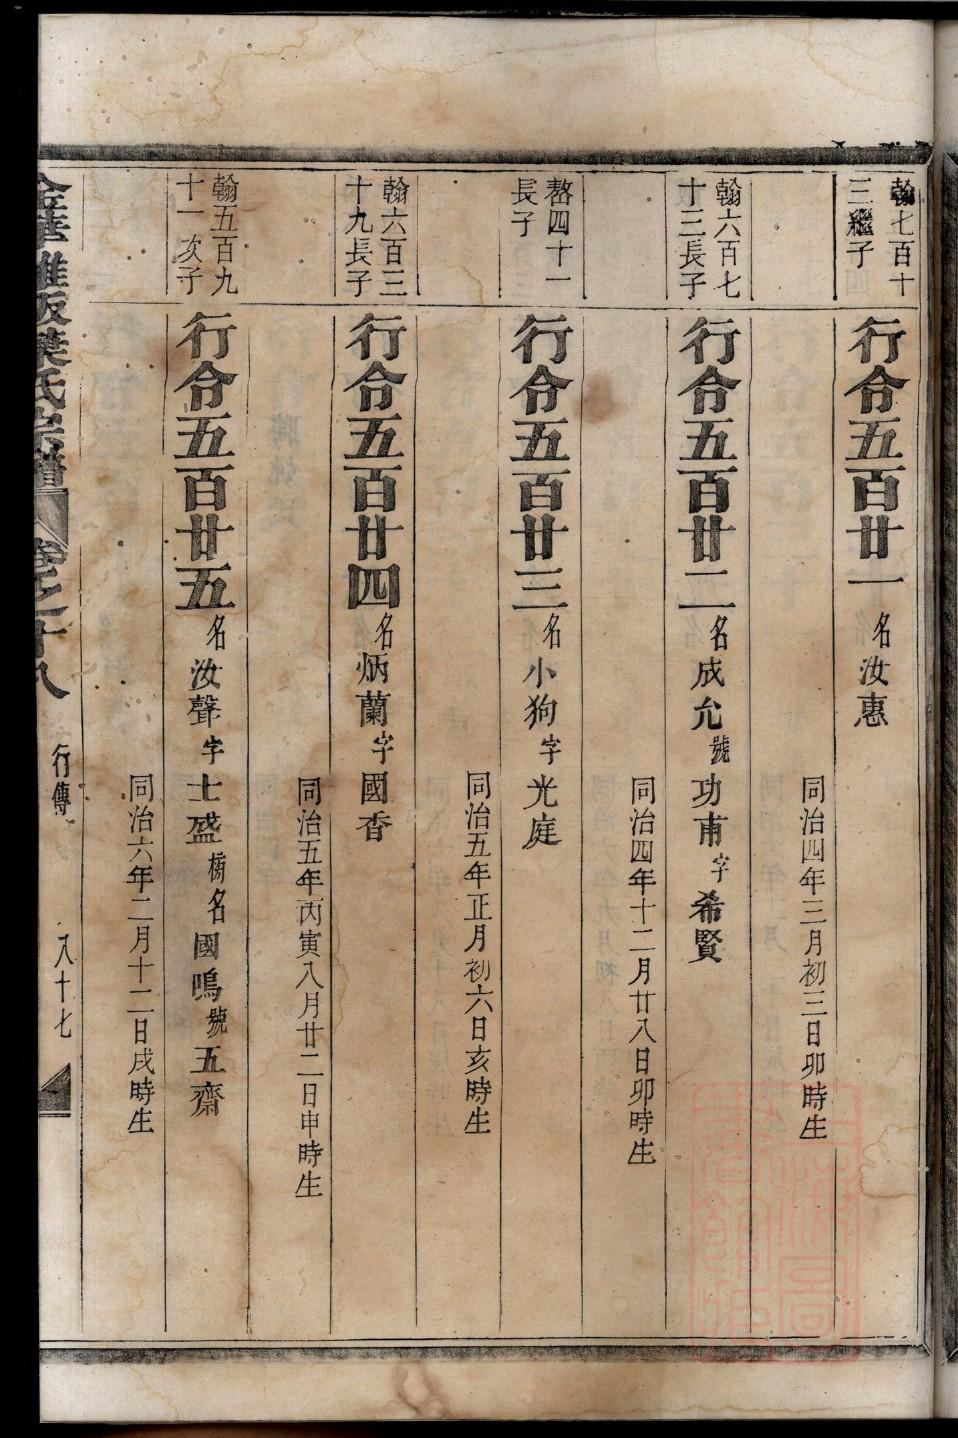 翰七百十
三繼子
行令五百廿一名汝惠
同治四年三月初三日卯時生
翰六百七
十三長子
行令五百廿二名成允號功甫字希賢
同治四年十二月廿八日卯時生
嶅四十一
長子
行令五百廿三名小狗字光庭
同治五年正月初六日亥時生
翰六百三
十九長子
行令五百廿四名炳蘭字國香
同治五年丙寅八月廿二日申時生
翰五百九
十一次子
行令五百廿五名汝聲字士盛榜名國鳴號五齋
同治六年二月十二日戌時生
金華 氏宗譜 卷之十八 行傳 八十七